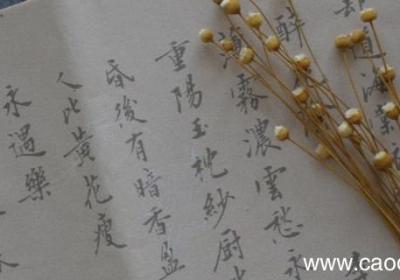 却道海棠
醉
薄霧濃雲愁永
重陽玉枕紗厨
昏後有暗香盈
人比黃花瘦
永遇樂
www.caoc